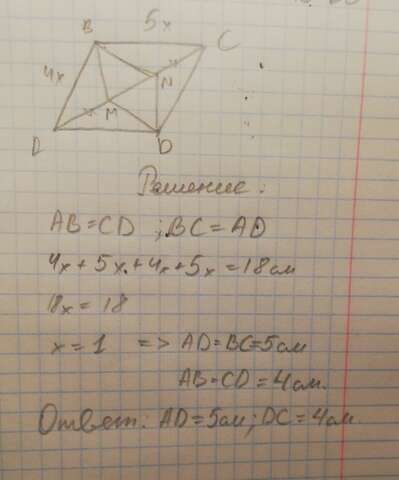 5x
B
C
4x
N
M
D
Решение:
AB=CD ; BC=AD
4x+5x+4x+5x=18см
18x=18
x=1 => AD=BC=5см
AB=CD=4см.
Ответ: AD=5см; DC=4см.